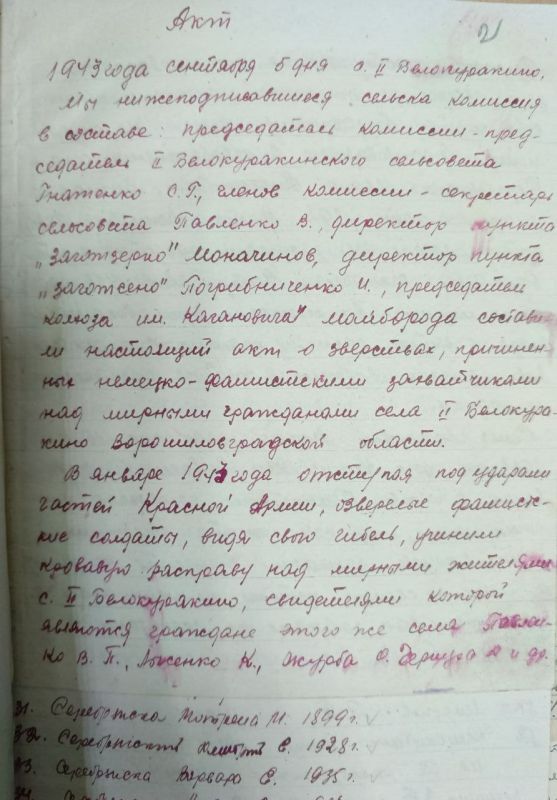 Акт
21
1943 года сентября 5 дня с. II Белокуракино,
Мы нижеподписавшиеся сельска комиссия
в составе: председатель комиссии - пред-
седатель II Белокуракинского сельсовета
Гнатенко С.Г., членов комиссии - секретарь
сельсовета Павленко В., директор пункта
„Заготзерно" Моначинов, директор пункта
„Заготсено" Погрибниченко И., председатель
колхоза им. Кагановича" Майборода состави-
ли настоящий акт о зверствах, причинен-
ных немецко-фашистскими захватчиками
над мирными гражданами села II Белокура-
кино Ворошиловградской области.
В январе 1943 года отступая под ударами
частей Красной Армии, озверелые фашистс-
кие солдаты, видя свою гибель, учинили
кровавую расправу над мирными жителями
с. II Белокуракино, свидетелями которой
являются граждане этого же села Павлен-
ко В.П., Лысенко К., Журба О. и др.
31. Серебрянска Мотрена М. 1899 г.
32. Серебрянский Е. 1928 г.
33. Серебрянска Варвара Е. 1935 г.
34.